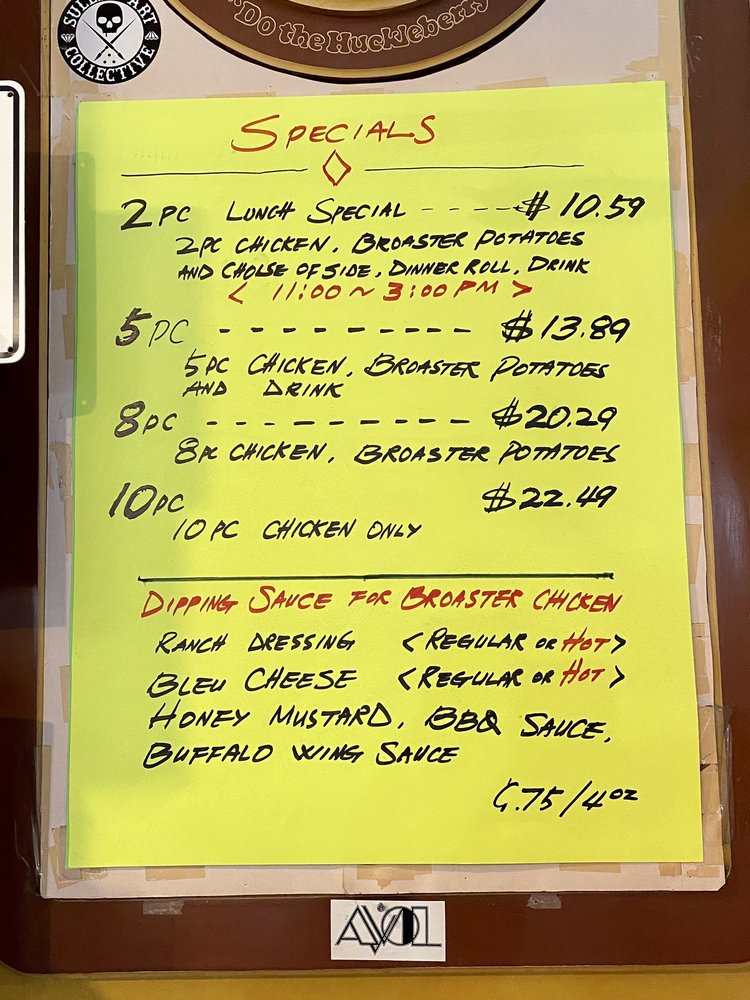 SULLEN ART
COLLECTIVE
"Do the Huckleberry
SPECIALS
2 PC LUNCH SPECIAL - - - - - $ 10.59
2PC CHICKEN, BROASTER POTATOES
AND CHOISE OF SIDE, DINNER ROLL, DRINK
< 11:00 ~ 3:00 PM >
5 PC - - - - - - - - - - $ 13.89
5 PC CHICKEN, BROASTER POTATOES
AND DRINK
8 PC - - - - - - - - - - $20.29
8PC CHICKEN, BROASTER POTATOES
10 PC $22.49
10 PC CHICKEN ONLY
DIPPING SAUCE FOR BROASTER CHICKEN
RANCH DRESSING < REGULAR OR HOT >
BLEU CHEESE < REGULAR OR HOT >
HONEY MUSTARD, BBQ SAUCE,
BUFFALO WING SAUCE
.75/4oz